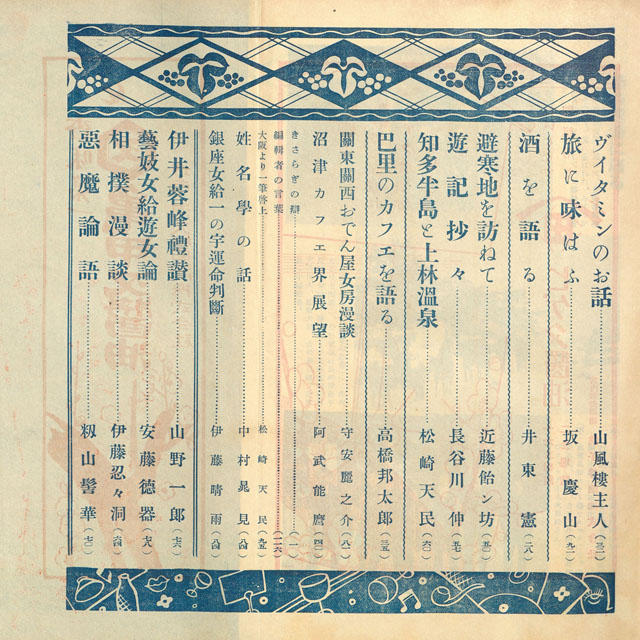 ヴイタミンのお話 山風樓主人(三二)
旅に味はふ 坂慶山(九二)
酒を語る 井東憲(二八)
避寒地を訪ねて 近藤飴ン坊
遊記抄々 長谷川伸(五七)
知多半島と上林溫泉 松崎天民(六〇)
巴里のカフェを語る 高橋邦太郎(三五)
關東關西おでん屋女房漫談 守安麗之介(八一)
沼津カフェ界展望 阿武能麿(四二)
きさらぎの辯(一)
編輯者の言葉(一一六)
大阪より一筆啓上 松崎天民(九五)
姓名學の話 中村晃見(八四)
銀座女給一の字運命判斷 伊藤晴雨(八四)
伊井蓉峰禮讃 山野一郎(七六)
藝妓女給遊女論 安藤德器(七八)
相撲漫談 伊藤忍々洞(六四)
惡魔論語 籾山髻華(七〇)